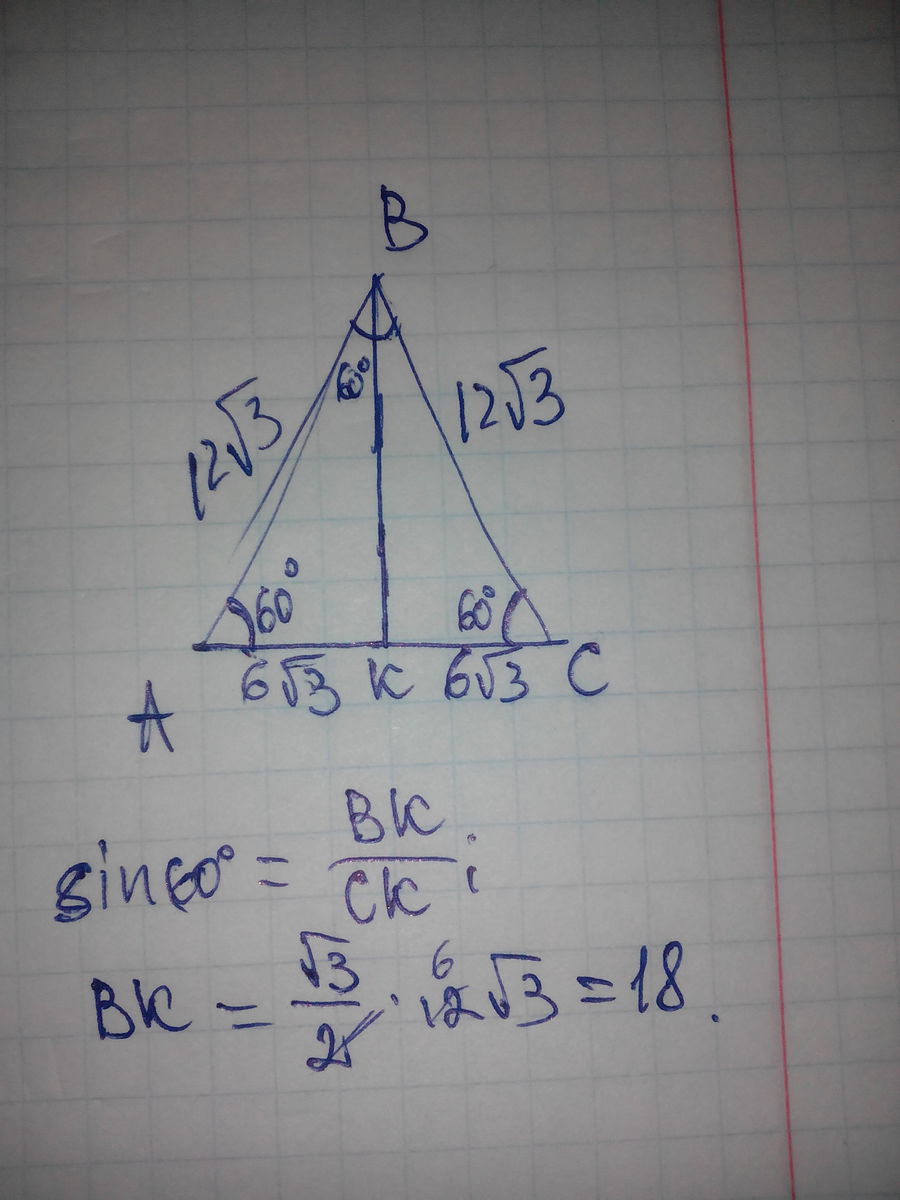 B
12√3
12√3
60°
60°
60°
A
6√3 K 6√3 C
sin60° = BK/CK ;
BK = √3/2 · 6 12√3 = 18.